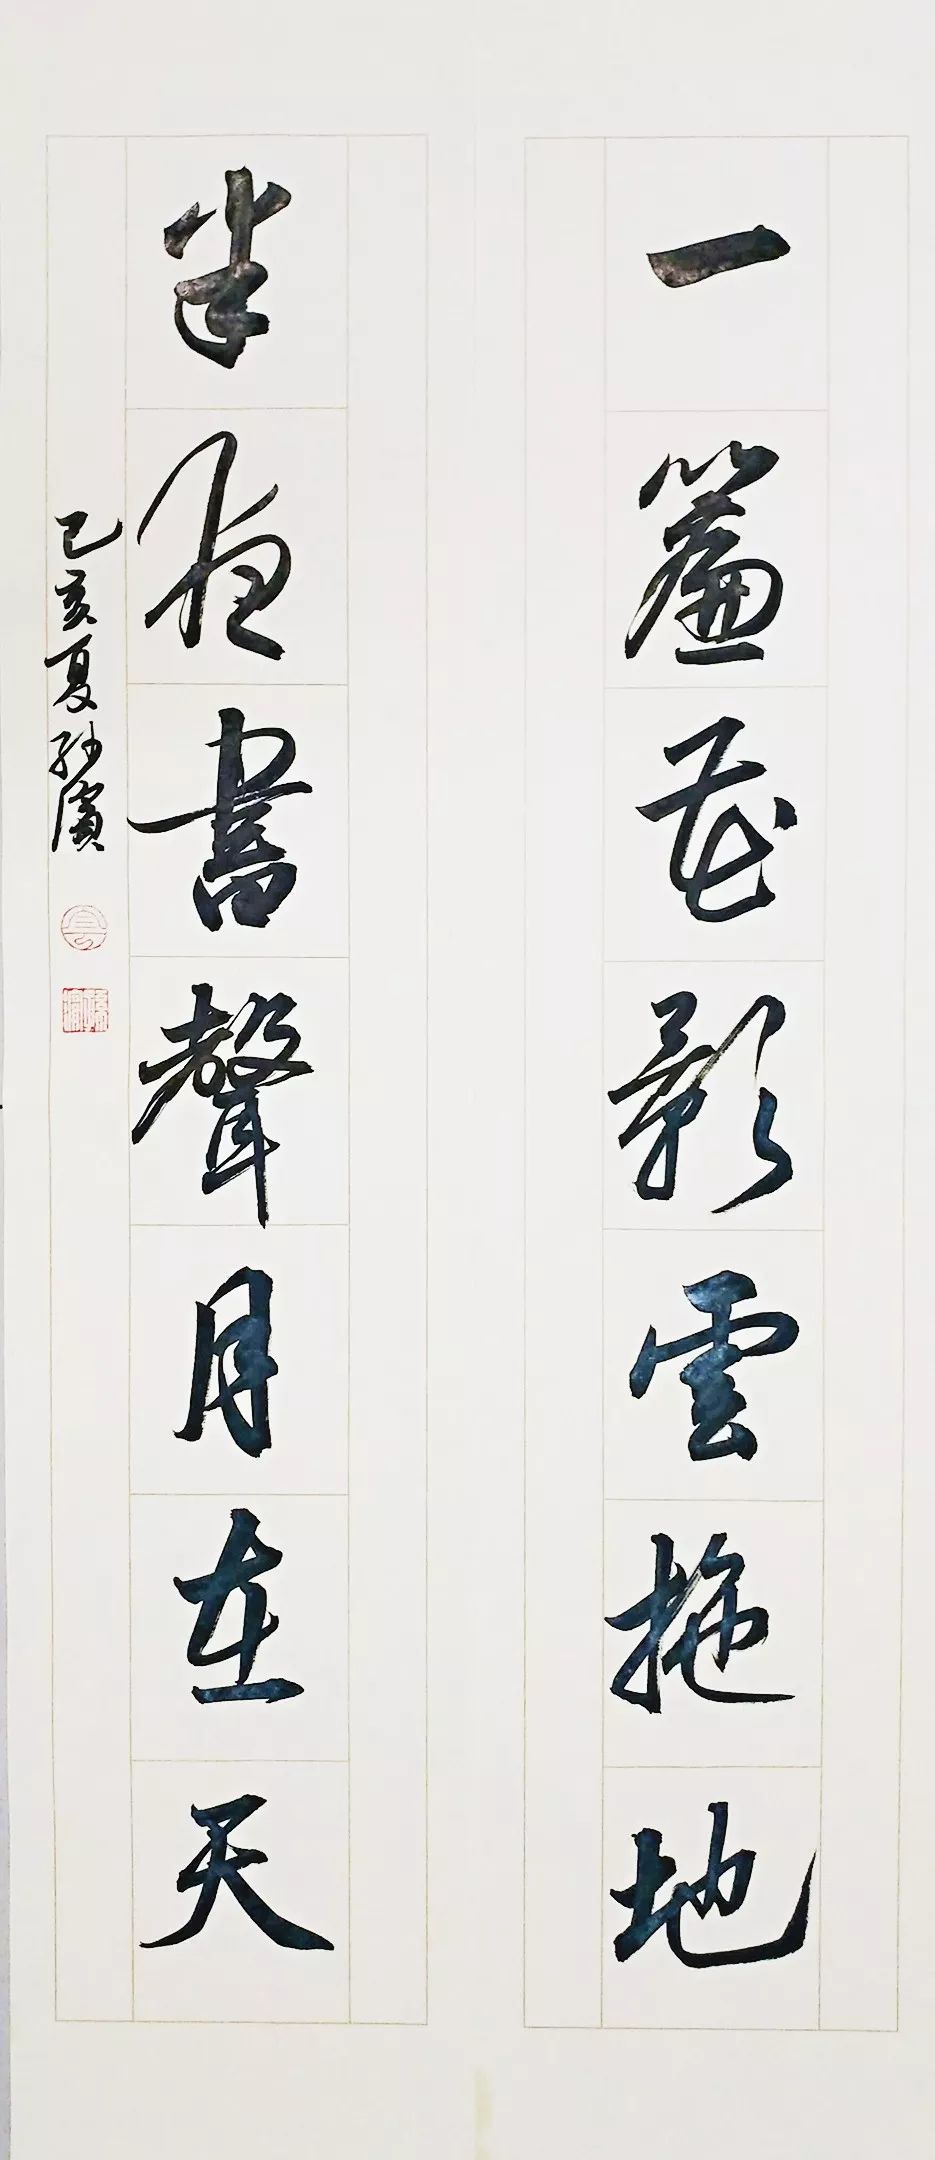 一簾花影雲拖地
半夜書聲月在天
己亥夏孙濱